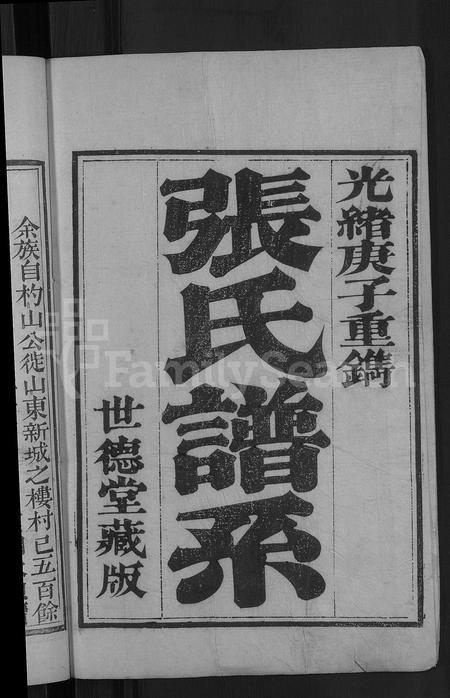 光緒庚子重鐫
張氏譜系
世德堂藏版
余族自杓山公徙山東新城之樓村已五百餘
FamilySearch